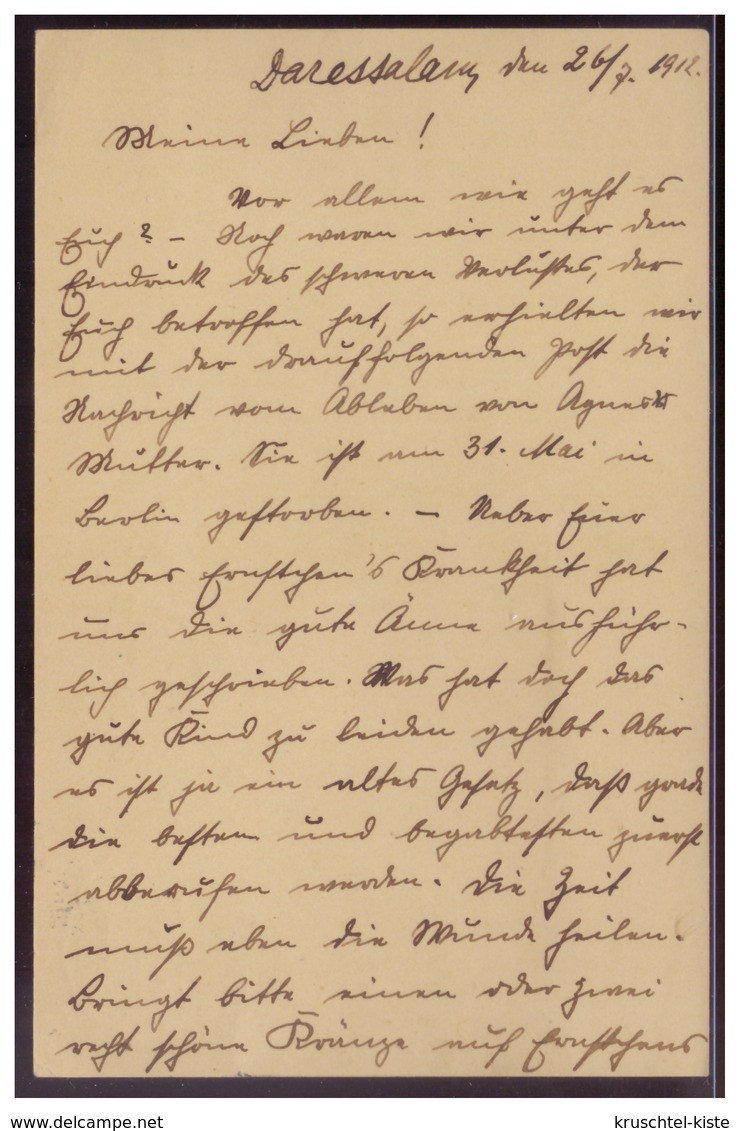 Daressalam, den 26/7. 1912.
Meine Lieben!
Vor allem wie geht es
Euch? – Noch waren wir unter dem
Eindruck des schweren Verlustes, der
Euch betroffen hat, so erhielten wir
mit der drauffolgenden Post die
Nachricht vom Ableben von Agnes
Mutter. Sie ist am 31. Mai in
Berlin gestorben. – Ueber Euer
liebes Ernstchen's Krankheit hat
uns die gute Änne ausführ-
lich geschrieben. Was hat doch das
gute Kind zu leiden gehabt. Aber
es ist ja ein altes Gesetz, daß grade
die besten und begabtesten zuerst
abberufen werden. Die Zeit
muß eben die Wunde heilen.
Bringt bitte einen oder zwei
recht schöne Kränze auf Ernstchens
www.delcampe.net
kruschtel-kiste